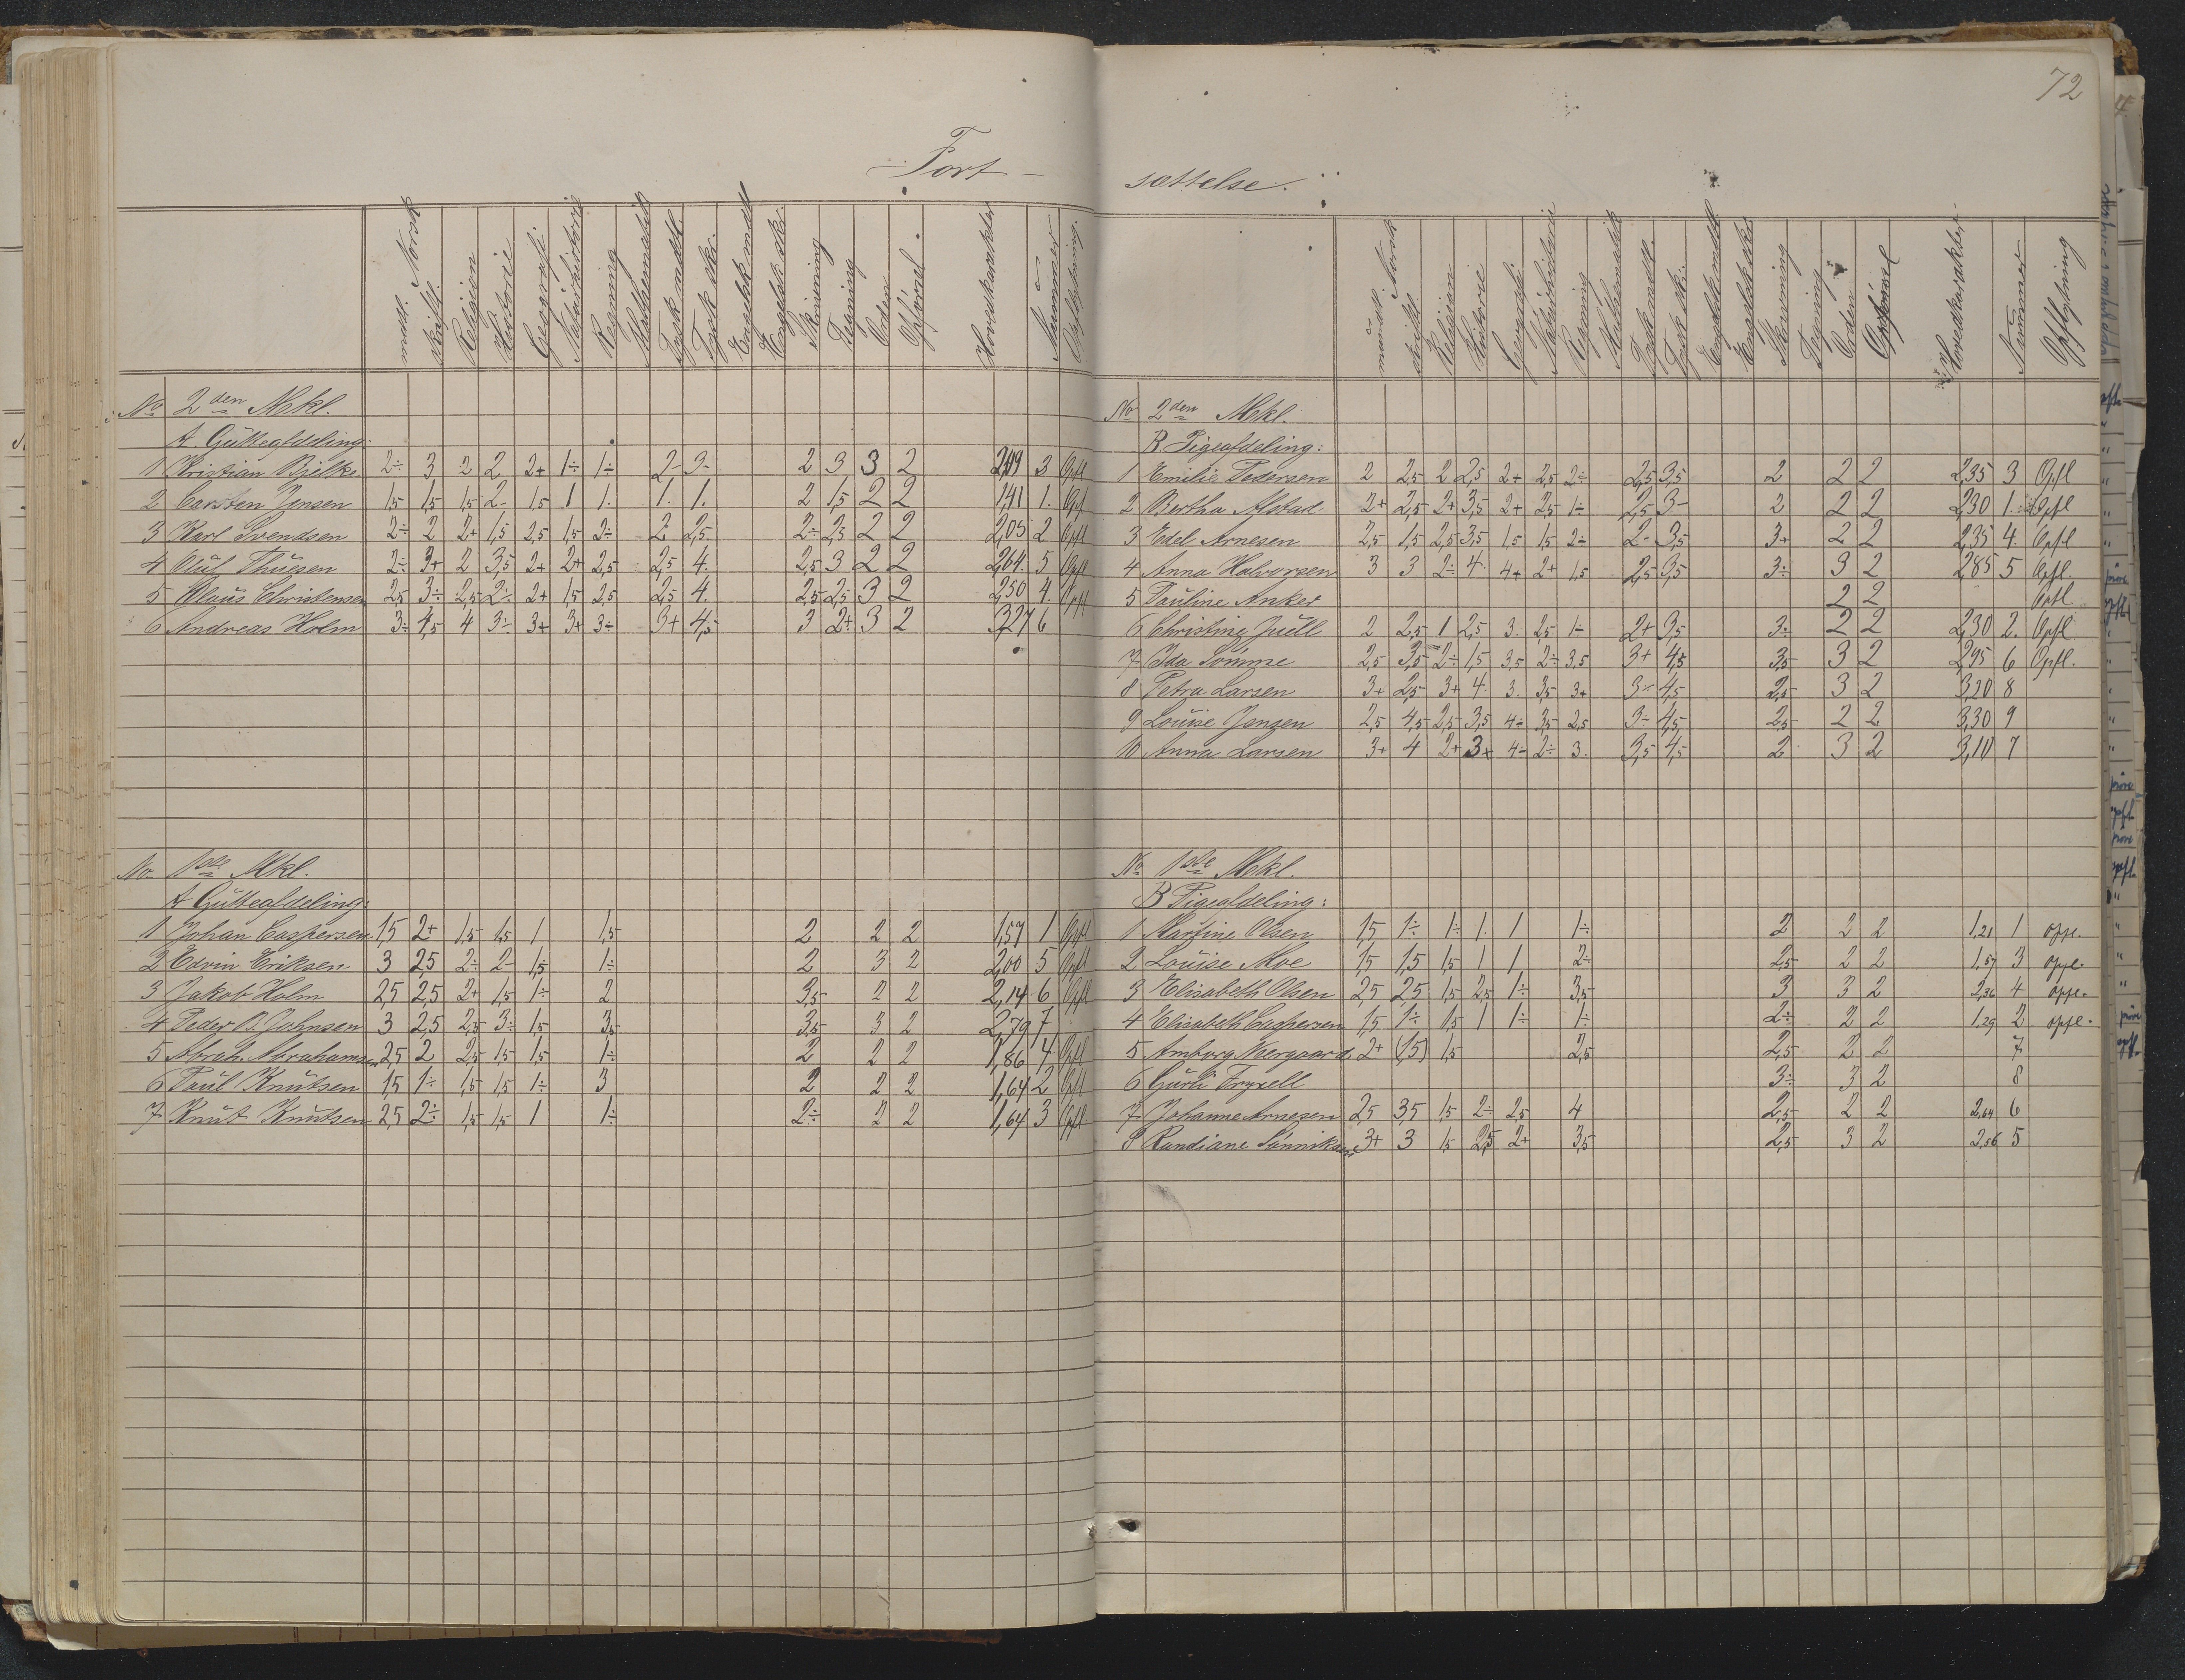 72
Fort-
mdtl. Norsk skriftl. Religion Historie Geografi Naturhistorie Regning Mathematik Tysk mdtl. Tysk skr. Engelsk mdtl. Engelsk skr. Skrivning Tegning Orden Opførsel. Hovedkarakter Nummer Opflytning.
No 2den Mkl.
A. Gutteafdeling:
1 Kristian Bjelke 2÷ 3 2 2 2+ 1÷ 1÷ 2- 3- 2 3 3 2 2,19 3 Opfl
2 Carsten Jensen 1,5 1,5 1,5 2- 1,5 1 1. 1. 1. 2 1,5 2 2 1,41 1. Opfl
3 Karl Svendsen 2÷ 2 2+ 1,5 2,5 1,5 2÷ 2 2,5 2÷ 2,5 2 2 2,05 2 Opfl
4 Oluf Thuesen 2÷ 3+ 2 3,5 2+ 2+ 2,5 2,5 4. 2,5 3 2 2 2,64 5 Opfl
5 Claus Christensen 2,5 3÷ 2,5 2÷ 2+ 1,5 2,5 2,5 4. 2,5 2,5 3 2 2,50 4. Opfl
6 Andreas Holm 3÷ 4,5 4 3÷ 3+ 3+ 3÷ 3+ 4,5 3 2+ 3 2 3,27 6
No. 1ste Mkl.
A Gutteafdeling:
1 Johan Caspersen 1,5 2+ 1,5 1,5 1 1,5 2 2 2 1,57 1 Opfl
2 Edvin Eriksen 3 2,5 2÷ 2- 1,5 1÷ 2 3 2 2,00 5 Opfl
3 Jakob Holm 2,5 2,5 2+ 1,5 1÷ 2 3,5 2 2 2,14 6 Opfl
4 Peder B. Johnsen 3 2,5 2,5 3÷ 1,5 3,5 3,5 3 2 2,79 7
5 Abrah. Abrahamsen 2,5 2 2,5 1,5 1,5 1÷ 2 2 2 1,86 4 Opfl
6 Paul Knutsen 1,5 1÷ 1,5 1,5 1÷ 3 2 2 2 1,64 2 Opfl
7 Knut Knutsen 2,5 2÷ 1,5 1,5 1 1÷ 2÷ 2 2 1,64 3 Opfl
sættelse.
mundtl. Norsk skriftl. Religion Historie Geografi Naturhistorie Regning Mathematik Tysk mdtl. Tysk skr. Engelsk mdtl. Engelsk skr. Skrivning Tegning Orden Opførsel Hovedkarakter Nummer Opflytning
No 2den Mkl.
B Pigeafdeling:
1 Emilie Pedersen 2 2,5 2 2,5 2+ 2,5 2÷ 2,5 3,5 2 2 2 2,35 3 Opfl
2 Bertha Alstad 2+ 2,5 2+ 3,5 2+ 2,5 1÷ 2,5 3- 2 2 2 2,30 1. Opfl
3 Edel Arnesen 2,5 1,5 2,5 3,5 1,5 1,5 2÷ 2- 3,5 3+ 2 2 2,35 4. Opfl
4 Anna Halvorsen 3 3 2÷ 4. 4+ 2+ 1,5 2,5 3,5 3÷ 3 2 2,85 5 Opfl.
5 Pauline Anker 2 2 Opfl
6 Christine Juell 2 2,5 1 2,5 3. 2,5 1÷ 2+ 3,5 3÷ 2 2 2,30 2. Opfl
7 Ida Sømme 2,5 3,5 2÷ 1,5 3,5 2÷ 3,5 3+ 4,5 3,5 3 2 2,95 6 Opfl.
8 Petra Larsen 3+ 2,5 3+ 4. 3. 3,5 3+ 3÷ 4,5 2,5 3 2 3,20 8
9 Louise Jensen 2,5 4,5 2,5 3,5 4÷ 3,5 2,5 3÷ 4,5 2,5 2 2 3,30 9
10 Anna Larsen 3+ 4 2+ 3+ 4÷ 2÷ 3. 3,5 4,5 2 3 2 3,10 7
No 1ste Mkl.
B Pigeafdeling:
1 Martine Olsen 1,5 1÷ 1÷ 1. 1 1÷ 2 2 2 1,21 1 opfl.
2 Louise Moe 1,5 1,5 1,5 1 1 2÷ 2,5 2 2 1,57 3 opfl.
3 Elisabeth Olsen 2,5 2,5 1,5 2,5 1÷ 3,5 3 3 2 2,36 4 opfl.
4 Elisabeth Caspersen 1,5 1÷ 1,5 1 1÷ 1÷ 2÷ 2 2 1,29 2 opfl.
5 Amborg Neergaard 2+ (1,5) 1,5 2,5 2,5 2 2 7
6 Gurli Fryxell 3÷ 3 2 8
7 Johanne Arnesen 2,5 3,5 1,5 2÷ 2,5 4 2,5 2 2 2,64 6
8 Randiane Sønniksen 3+ 3 1,5 2,5 2+ 3,5 2,5 3 2 2,56 5